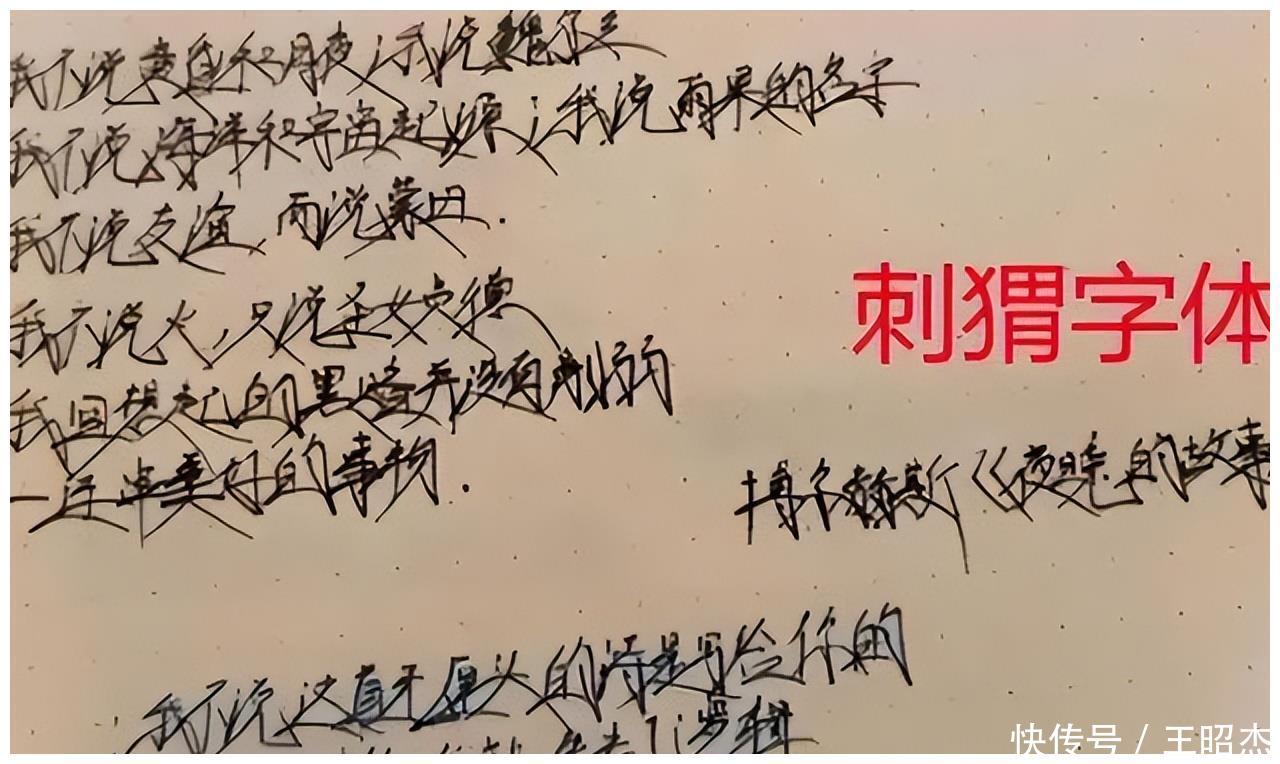 我不说黄莺和月夜;我说魏尔兰
我不说海洋和宇宙起源;我说雨果的名字
我不说友谊,而说蒙田.
我不说火,只说圣女贞德
刺猬字体
我回想起的黑暗并没有削弱
一连串美好的事物.
博尔赫斯《夜晚的故事
我不说这真无厘头的诗是写给你的
快传号 / 王昭杰